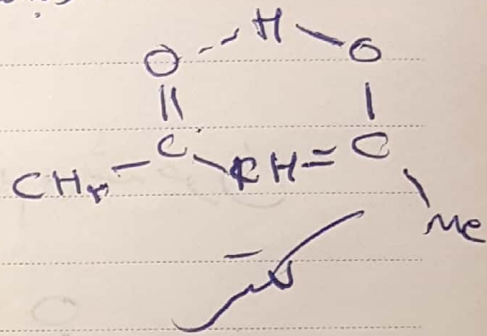 O -- H – O
|| |
CH۳ – C – CH = C
Me
کمتر